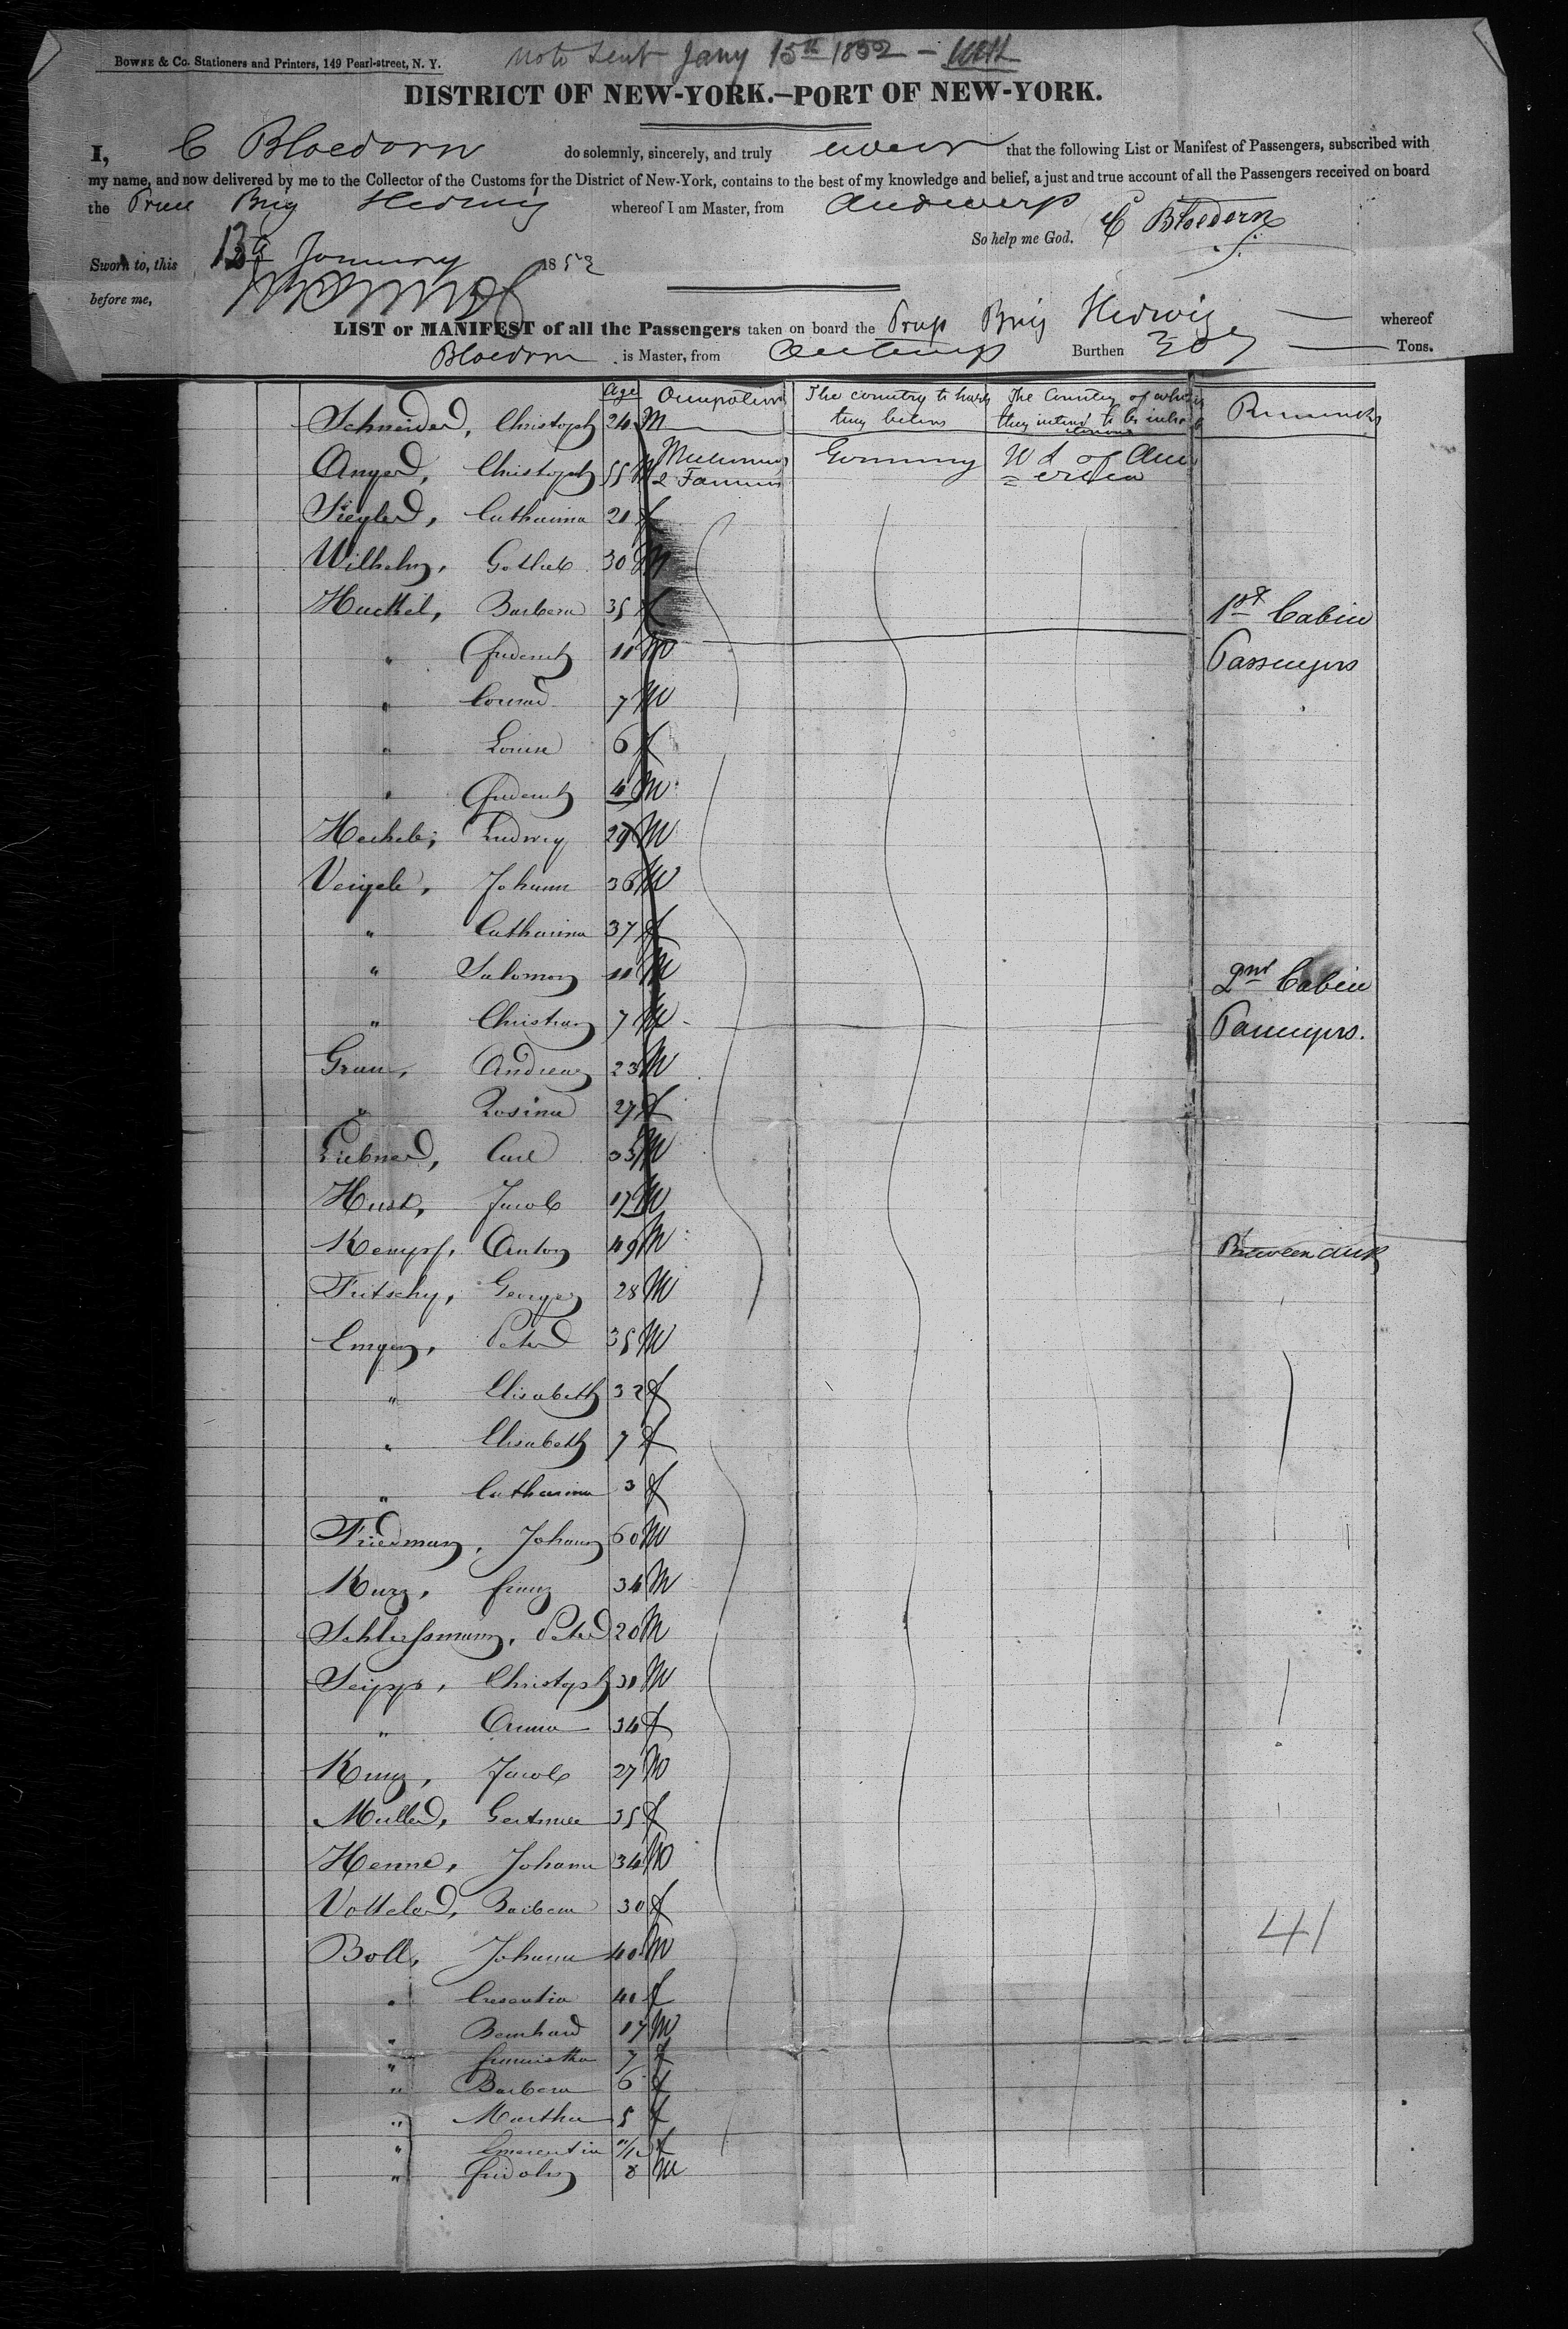 Note sent Jany 15th 1852 -
BOWNE & Co. Stationers and Printers, 149 Pearl-street, N. Y.
DISTRICT OF NEW-YORK.—PORT OF NEW-YORK.
I, C Bloedorn do solemnly, sincerely, and truly swear that the following List or Manifest of Passengers, subscribed with
my name, and now delivered by me to the Collector of the Customs for the District of New-York, contains to the best of my knowledge and belief, a just and true account of all the Passengers received on board
the Pruss Brig Hedwig whereof I am Master, from Andwerp
So help me God. C Bloedorn
Sworn to, this 13th January 1852
before me,
LIST or MANIFEST of all the Passengers taken on board the Prus Brig Hedwig whereof
Bloedorn is Master, from Antwerp Burthen Tons.
Age Occupation The country to which they belong The Country of which they intend to be inhab Remarks
Schneider, Christoph 24 M
Anger, Christoph 55 M Germany U S of America
Siegler, Catharina 21 f
Wilhelm, Gottlieb 30 M
Huckel, Barbera 35 f 1st Cabin
" Friderich 11 M Passengers
" Conrad 7 M
" Louise 6 f
" Friderich 4 M
Hechele, Ludwig 29 M
Veigele, Johann 36 M
" Catharina 37 f
" Salomon 11 M 2nd Cabin
" Christian 7 M Passengers.
Grau, Andreas 23 M
" Rosina 27 f
Liebner, Carl 35 M
Hust, Jacob 17 M
Kempf, Anton 49 M Between deck
Fritschy, George 28 M
Emgen, Peter 35 M
" Elisabeth 32 f
" Elisabeth 7 f
" Catharina 3 f
Friedman, Johann 60 M
Kurz, franz 34 M
Schliessmann, Peter 20 M
Seipp, Christoph 31 M
" Anna 34 f
Kunz, Jacob 27 M
Muller, Gertrude 35 f
Henne, Johann 34 M
Votteler, Barbera 30 f 41
Boll, Johann 40 M
" Cresentia 41 f
" Bernhard 17 M
" franciska 7 f
" Barbera 6 f
" Martha 5 f
" Emerentia 11/12 f
" fridolin 8 M